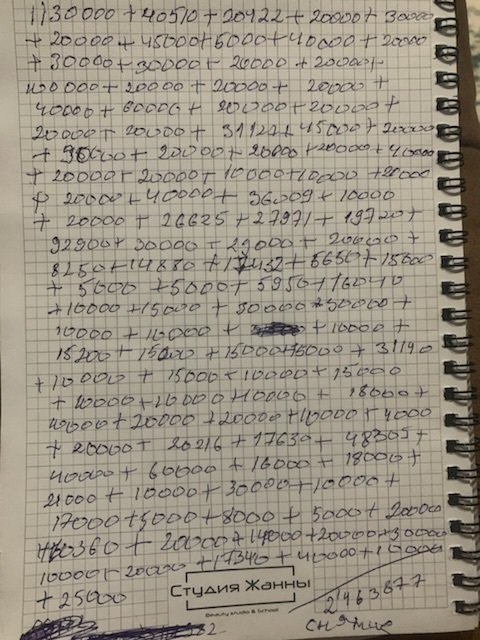 1) 30000 + 40510 + 20422 + 20000 + 30000
+ 20000 + 45000 + 5000 + 40000 + 20000
+ 30000 + 30000 + 20000 + 20000 +
100000 + 20000 + 20000 + 20000 +
40000 + 60000 + 20000 + 20000 +
20000 + 20000 + 31122 + 45000 + 20000
+ 20000 + 20000 + 20000 + 40000
+ 20000 + 20000 + 10000 + 10000 + 20000
20000 + 40000 + 36009 + 10000
+ 20000 + 26625 + 27971 + 19720 +
92900 + 30000 + 29000 + 20000 +
8250 + 14880 + 17432 + 5650 + 15000
+ 5000 + 5000 + 5950 + 16040
+ 10000 + 15000 + 30000 + 30000 +
10000 + 10000 + + 10000 +
15200 + 15200 + 15000 + 15000 + 31190
+ 10000 + 15000 + 10000 + 15000
+ 20000 + 10000 + 10000 + 18000 +
40000 + 20000 + 20000 + 10000 + 4000
+ 20000 + 20216 + 17630 + 48305 +
40000 + 60000 + 16000 + 18000 +
21000 + 10000 + 30000 + 10000 +
17000 + 5000 + 8000 + 5000 + 20000
10360 + 20000 + 14000 + 20000 + 30000
10000 + 20000 + 17340 + 40000 + 10000
+ 25000
Студия Жанны
Beauty studio & School
2463877
снятие